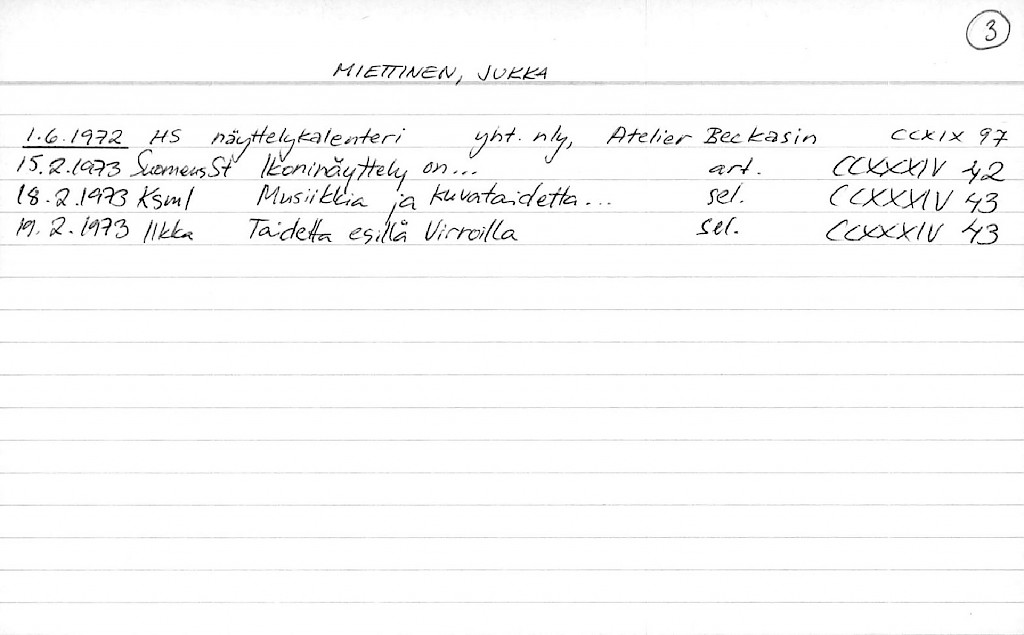 3
MIETTINEN, JUKKA
1.6.1972 HS näyttelykalenteri yht. nly, Atelier Beckasin CCXIX 97
15.2.1973 SuomensSt Ikoninäyttely on... art. CCXXXIV 42
18.2.1973 Ksml Musiikkia ja kuvataidetta... sel. CCXXXIV 43
19.2.1973 Ilkka Taidetta esillä Virroilla sel. CCXXXIV 43